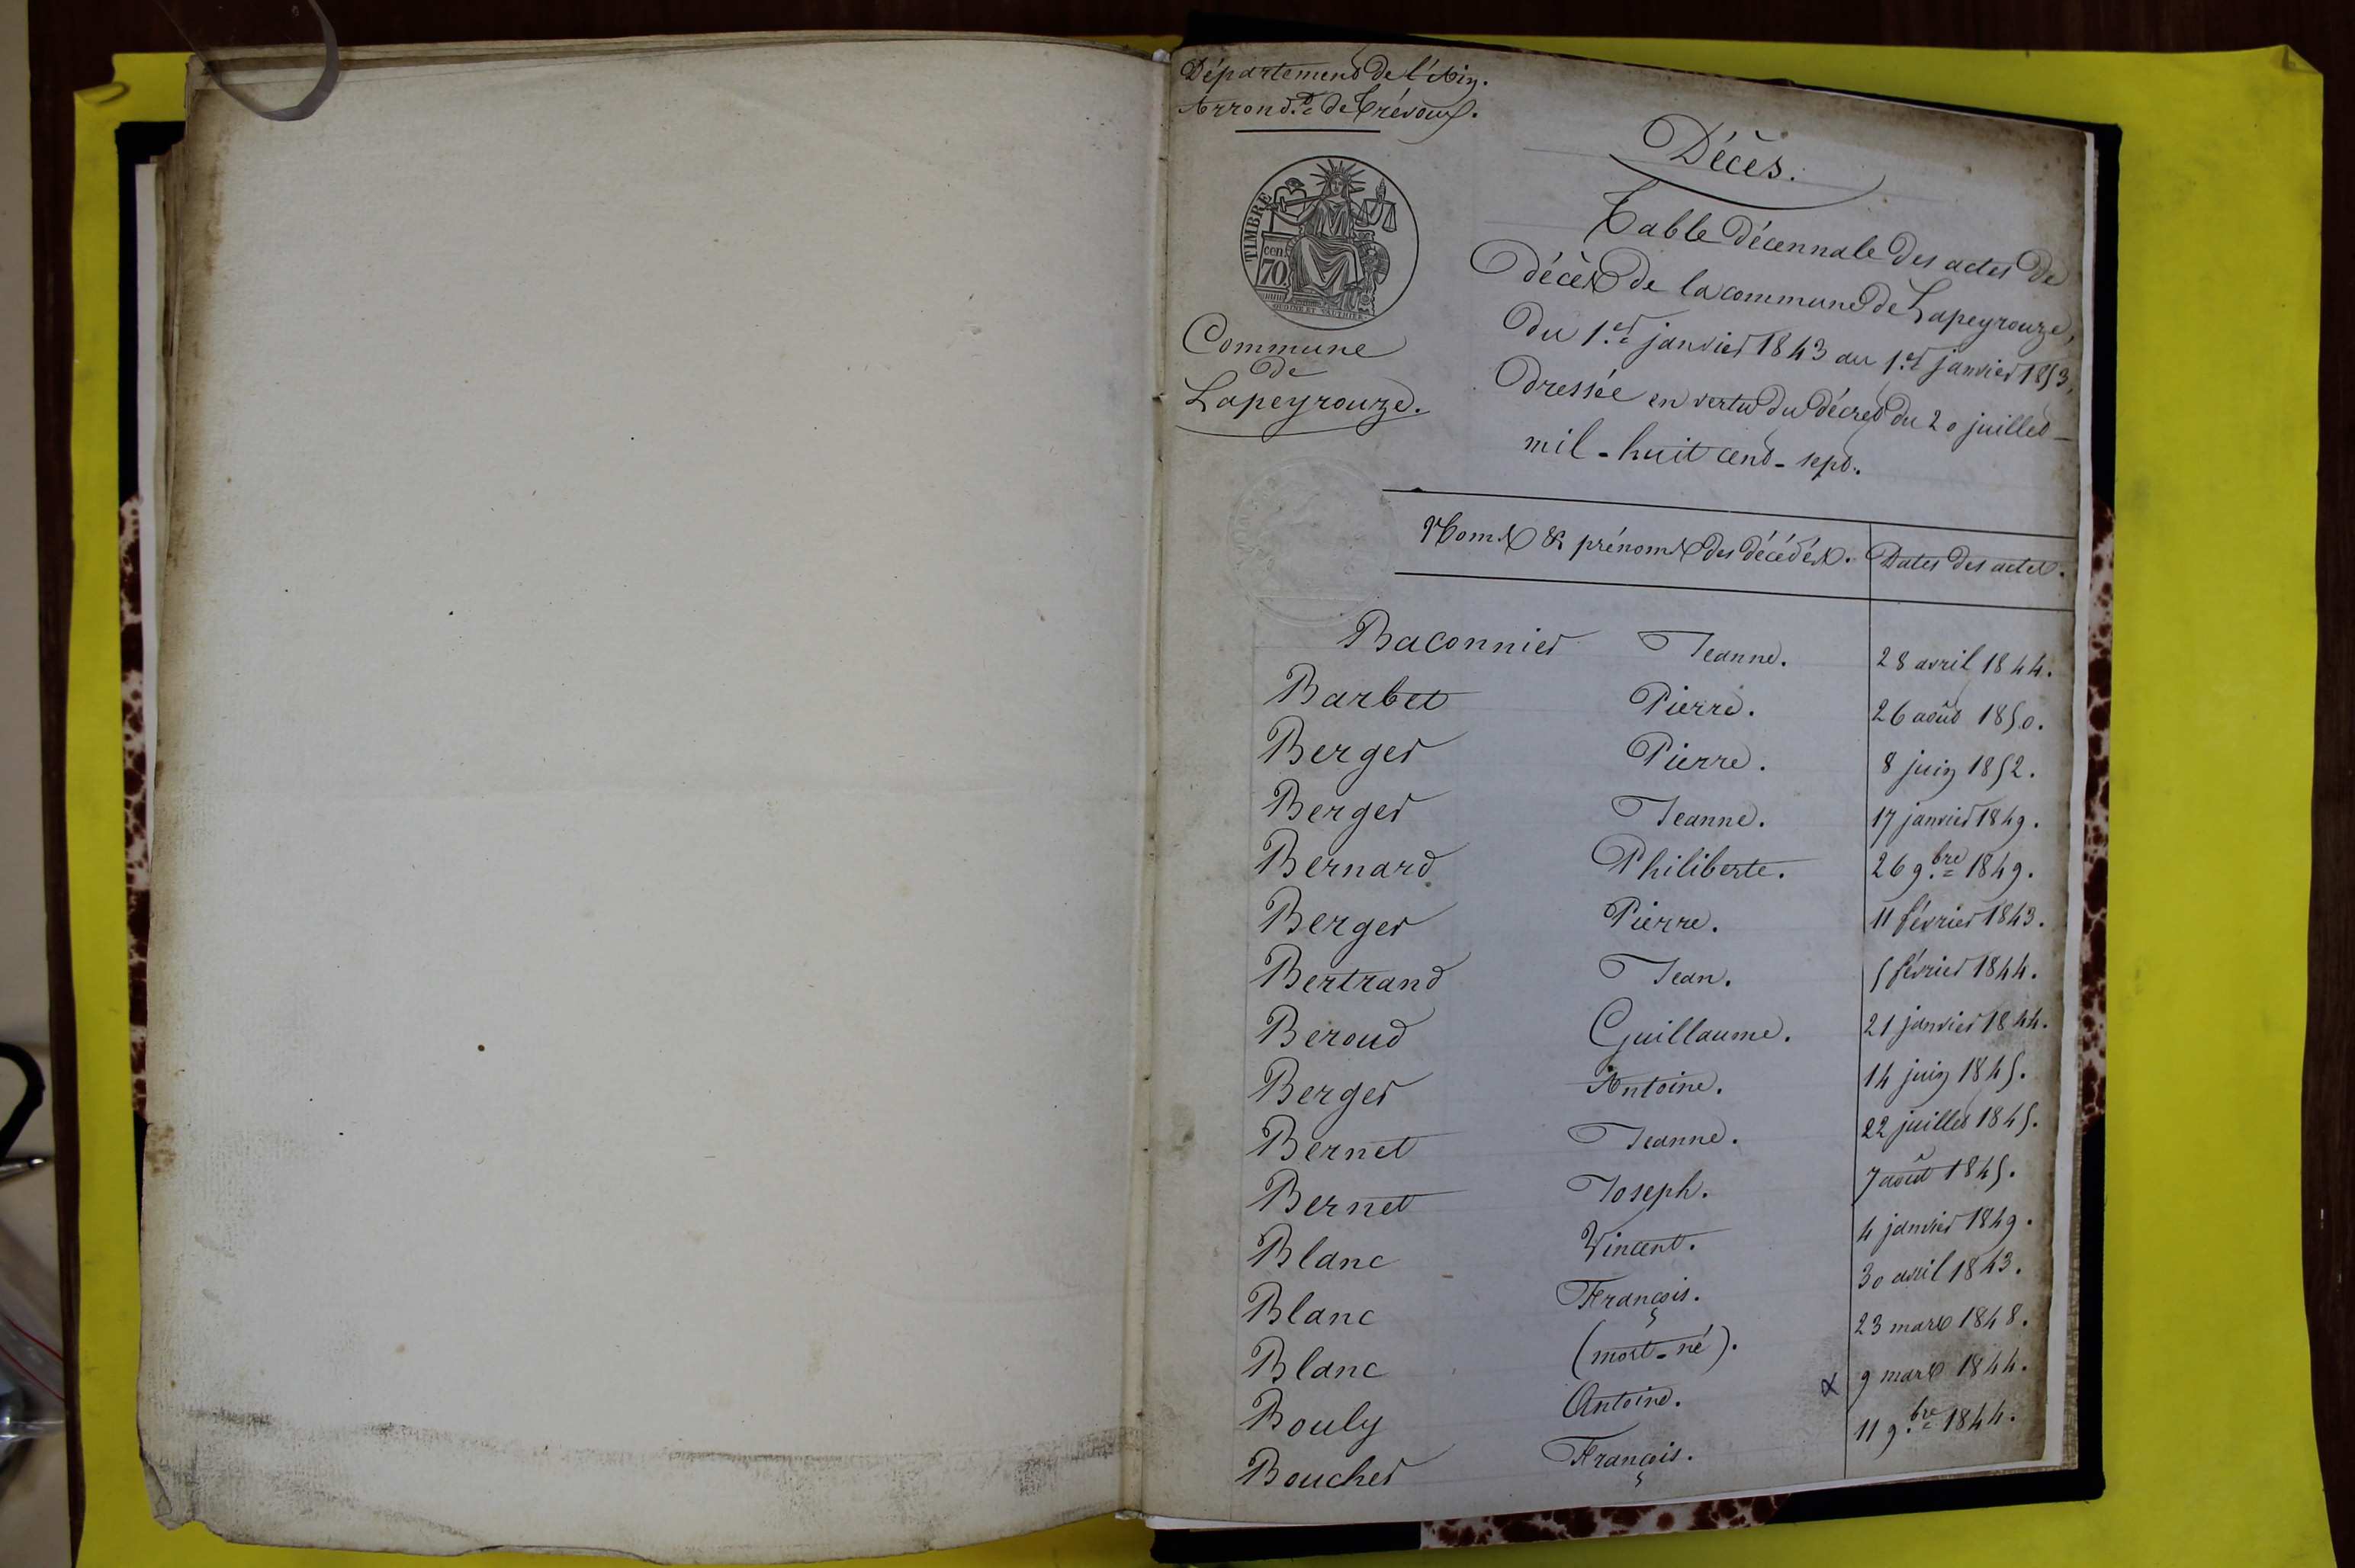 Département de l'Ain.
Arrond.t de Trévoux.
TIMBRE
cen.
70.
Commune
de
Lapeyrouze.
Décès.
Table décennale des actes de
décès de la commune de Lapeyrouze,
du 1.er janvier 1843 au 1.er janvier 1853,
dressée en vertu du décret du 20 juillet
mil-huit cent-sept.
Noms & prénoms des décédés. Dates des actes.
Baconnier Jeanne. 28 avril 1844.
Barbet Pierre. 26 août 1850.
Berger Pierre. 8 juin 1852.
Berger Jeanne. 17 janvier 1849.
Bernard Philiberte. 26 9.bre 1849.
Berger Pierre. 11 février 1843.
Bertrand Jean. 5 février 1844.
Beroud Guillaume. 21 janvier 1844.
Berger Antoine. 14 juin 1845.
Bernet Jeanne. 22 juillet 1845.
Bernet Joseph. 7 août 1845.
Blanc Vincent. 4 janvier 1849.
Blanc François. 30 avril 1843.
Blanc (mort-né). 23 mars 1848.
Bouly Antoine. x 9 mars 1844.
Boucher François. 11 9.bre 1844.